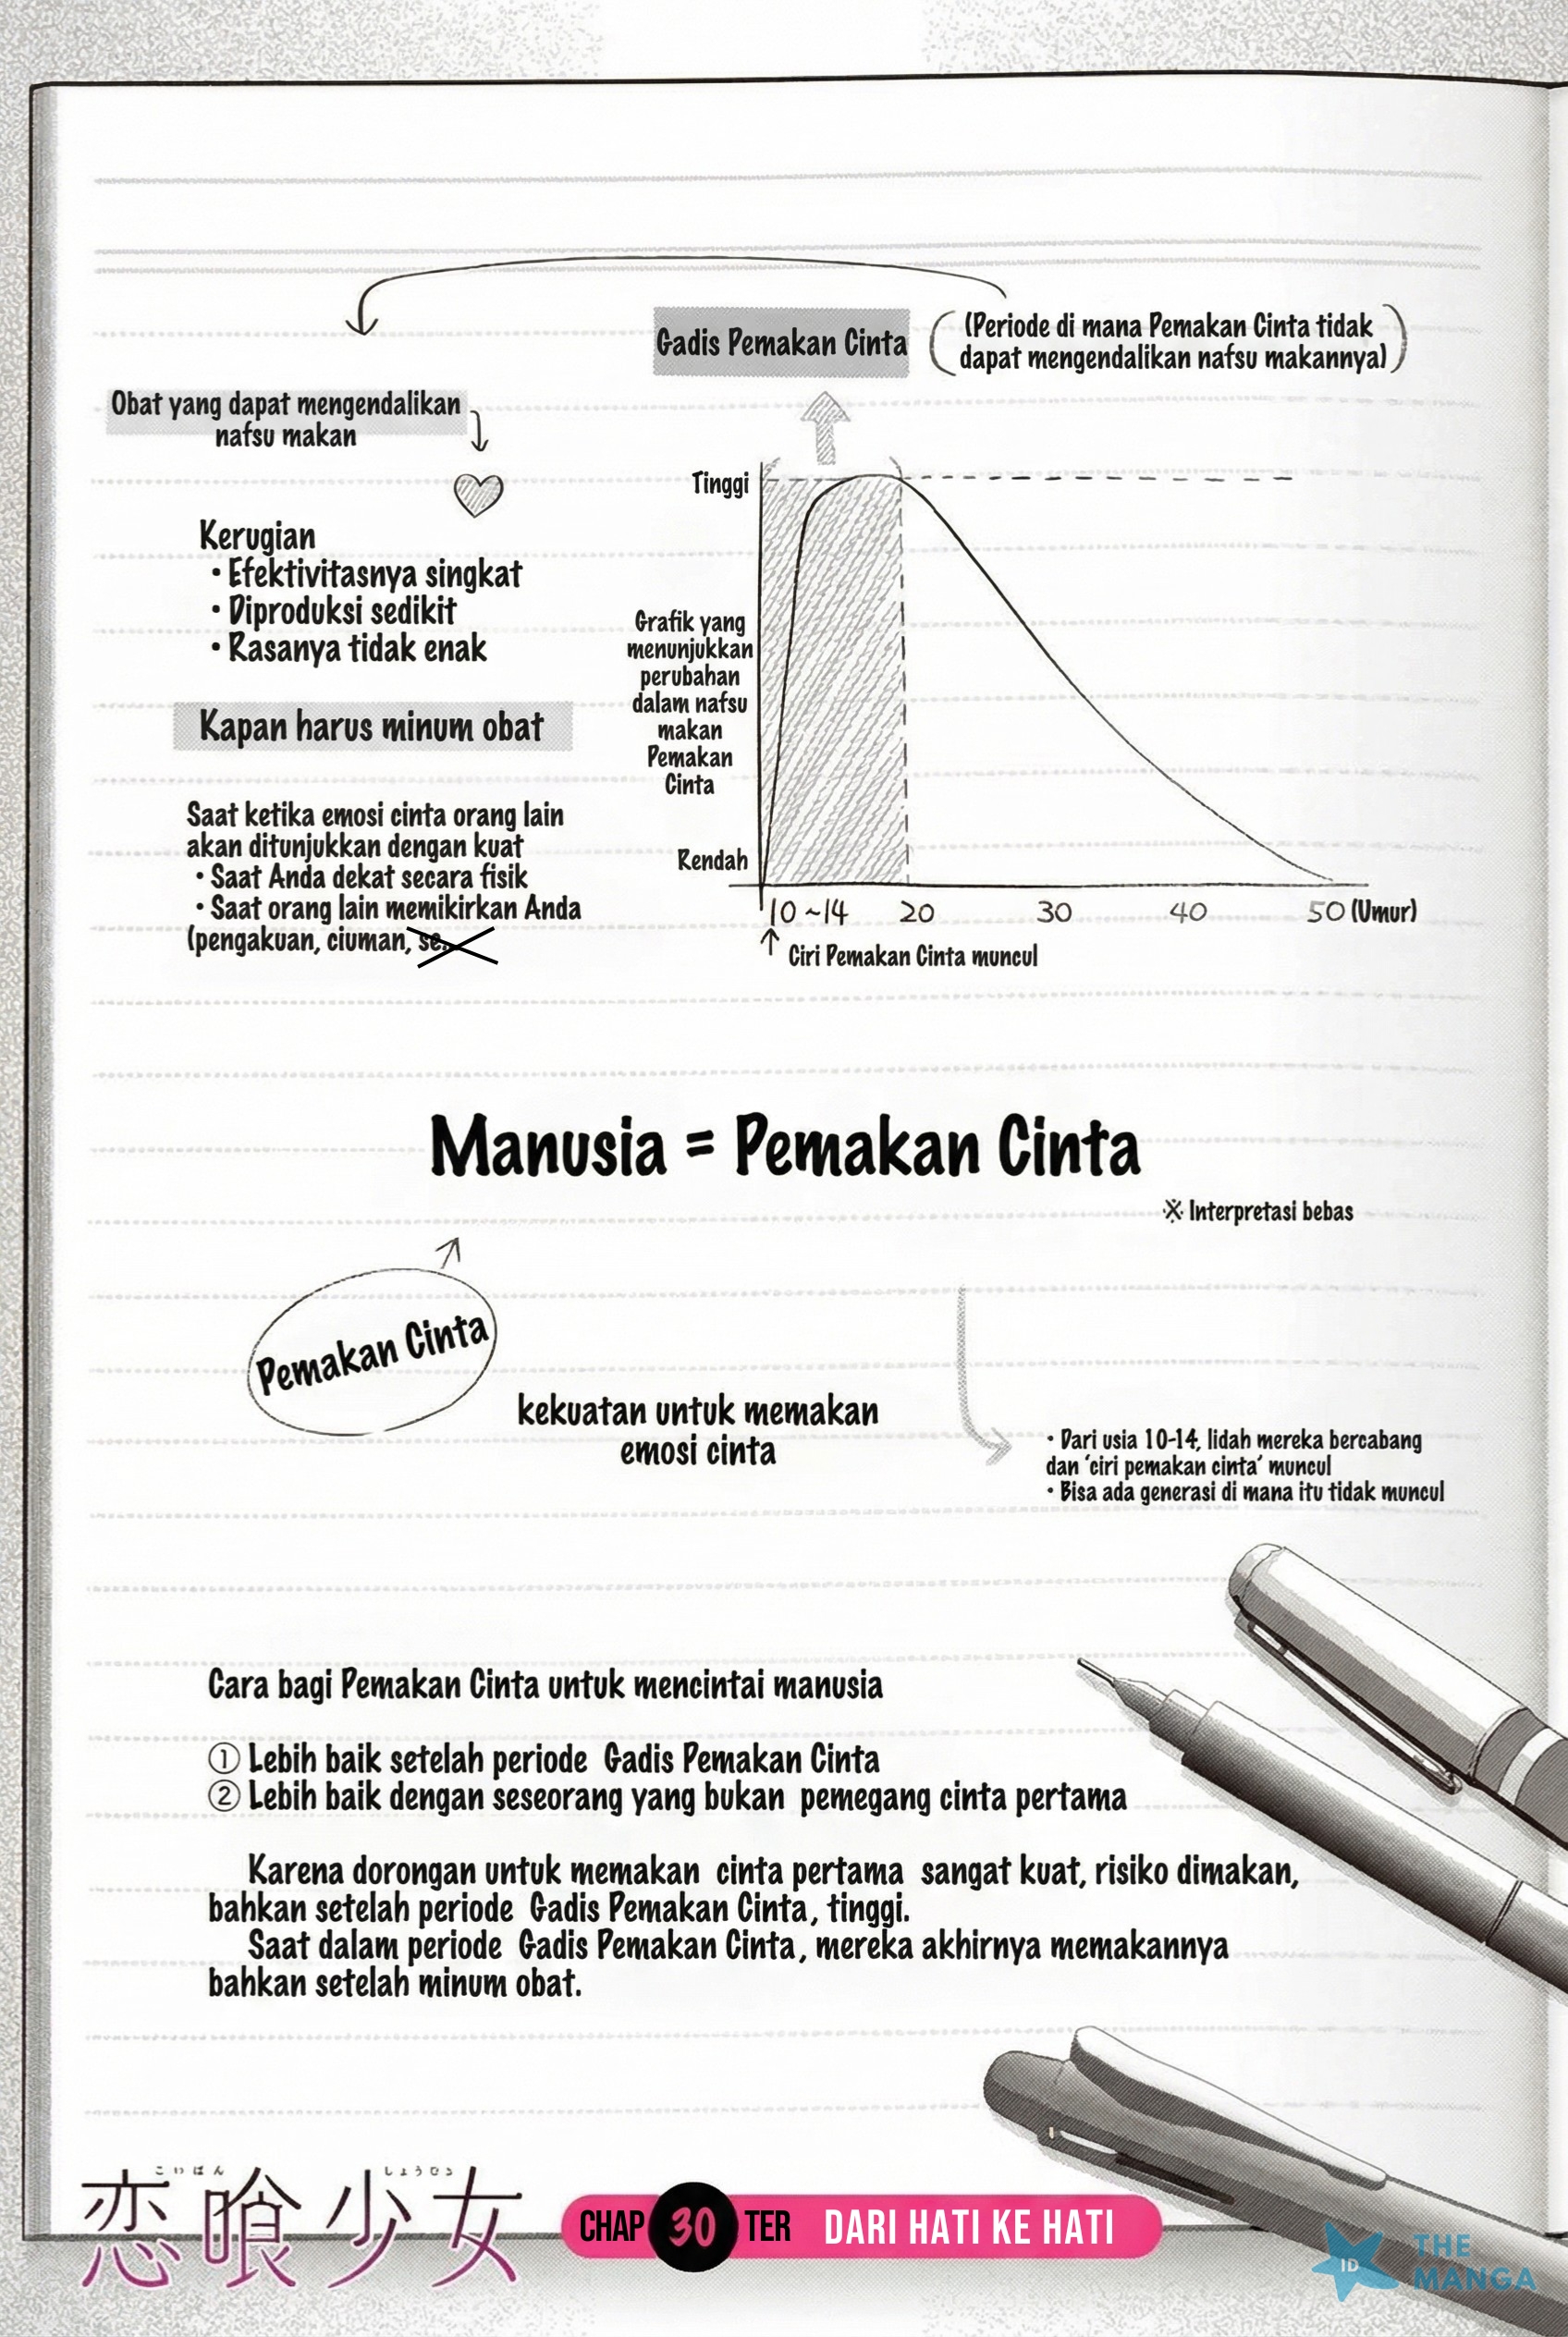 Gadis Pemakan Cinta
(Periode di mana Pemakan Cinta tidak
dapat mengendalikan nafsu makannya)
Obat yang dapat mengendalikan
nafsu makan
Kerugian
• Efektivitasnya singkat
• Diproduksi sedikit
• Rasanya tidak enak
Kapan harus minum obat
Saat ketika emosi cinta orang lain
akan ditunjukkan dengan kuat
• Saat Anda dekat secara fisik
• Saat orang lain memikirkan Anda
(pengakuan, ciuman, se..
Tinggi
Grafik yang
menunjukkan
perubahan
dalam nafsu
makan
Pemakan
Cinta
Rendah
10~14 20 30 40 50 (Umur)
↑ Ciri Pemakan Cinta muncul
Manusia = Pemakan Cinta
※ Interpretasi bebas
Pemakan Cinta
kekuatan untuk memakan
emosi cinta
• Dari usia 10-14, lidah mereka bercabang
dan ‘ciri pemakan cinta’ muncul
• Bisa ada generasi di mana itu tidak muncul
Cara bagi Pemakan Cinta untuk mencintai manusia
① Lebih baik setelah periode Gadis Pemakan Cinta
② Lebih baik dengan seseorang yang bukan pemegang cinta pertama
Karena dorongan untuk memakan cinta pertama sangat kuat, risiko dimakan,
bahkan setelah periode Gadis Pemakan Cinta, tinggi.
Saat dalam periode Gadis Pemakan Cinta, mereka akhirnya memakannya
bahkan setelah minum obat.
こいばん しょうじょ
恋喰少女
CHAP 30 TER DARI HATI KE HATI
ID THE
MANGA